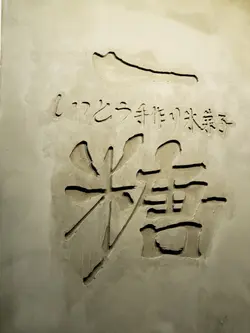 一
いっとう手作り氷菓子
糖